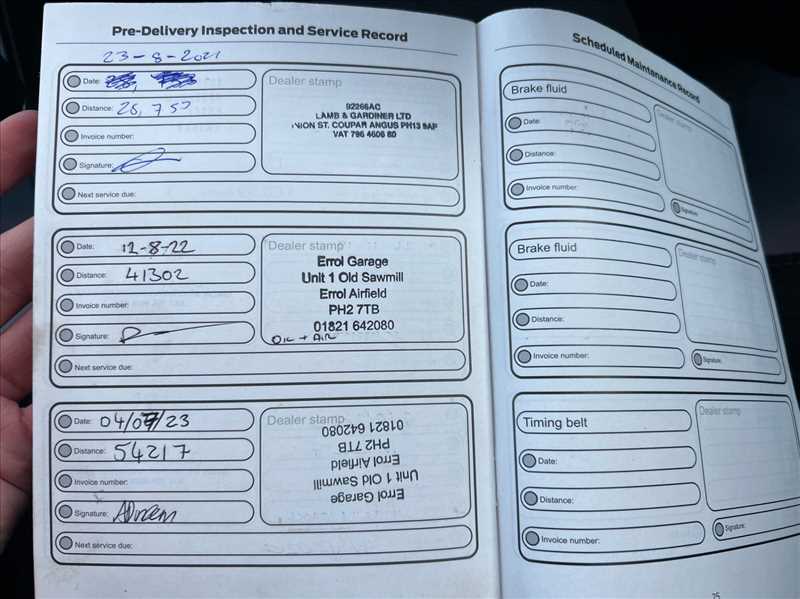 Pre-Delivery Inspection and Service Record
23-8-2021
Date:
Distance: 26,750
Invoice number:
Signature:
Next service due:
Dealer stamp
92266AC
LAMB & GARDINER LTD
UNION ST. COUPAR ANGUS PH13 9AF
VAT 796 4606 80
Date: 12-8-22
Distance: 41302
Invoice number:
Signature:
Next service due:
Dealer stamp
Errol Garage
Unit 1 Old Sawmill
Errol Airfield
PH2 7TB
01821 642080
OIL + AIR
Date: 04/07/23
Distance: 54217
Invoice number:
Signature:
Next service due:
Dealer stamp
Errol Garage
Unit 1 Old Sawmill
Errol Airfield
PH2 7TB
01821 642080
Scheduled Maintenance Record
Brake fluid
Date:
Distance:
Invoice number:
Dealer stamp
Signature:
Brake fluid
Date:
Distance:
Invoice number:
Dealer stamp
Signature:
Timing belt
Date:
Distance:
Invoice number:
Dealer stamp
Signature:
75